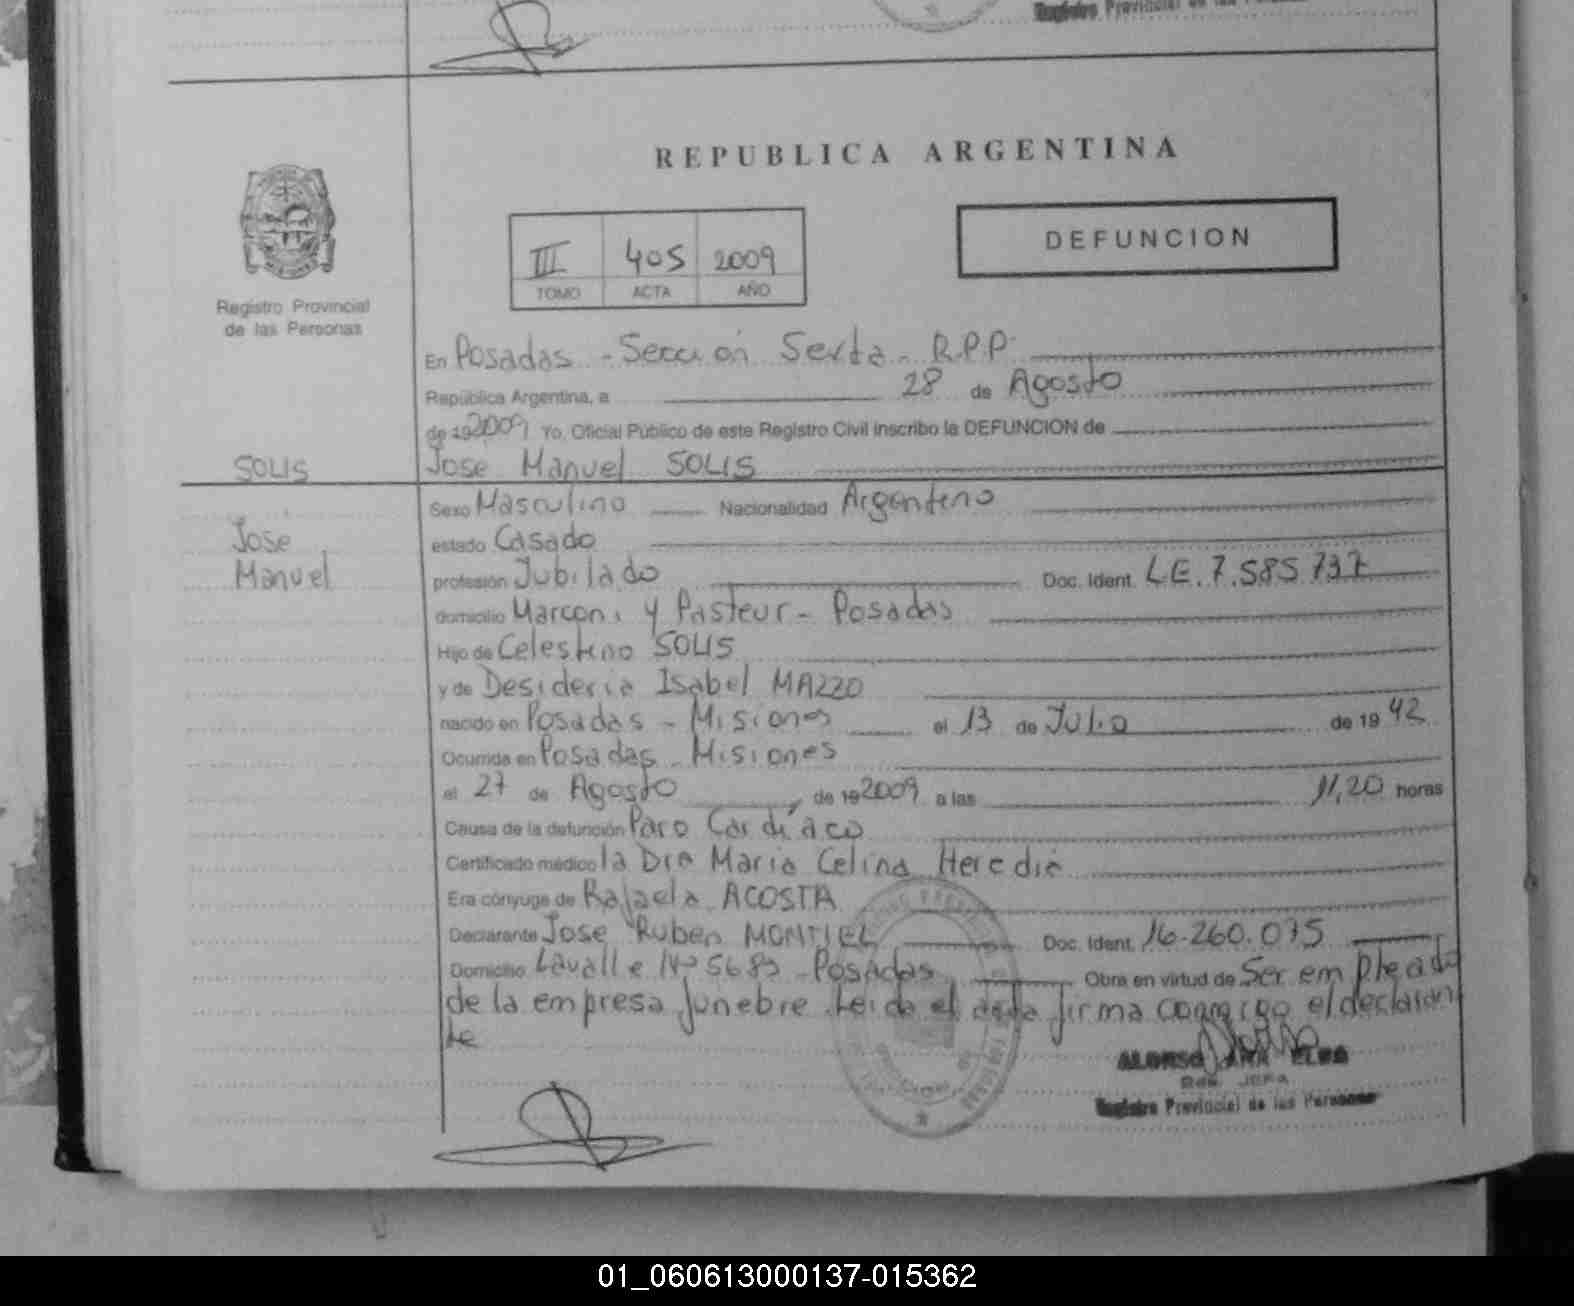 Registro Provincial de las Personas
REPUBLICA ARGENTINA
III 405 2009
TOMO ACTA AÑO
DEFUNCION
Registro Provincial
de las Personas
En Posadas - Sección Sexta - R.P.P.
República Argentina, a 28 de Agosto
de 192009 Yo, Oficial Público de este Registro Civil inscribo la DEFUNCION de
SOLIS
Jose Manuel SOLIS
Jose
Manuel
Sexo Masculino Nacionalidad Argentino
estado Casado
profesión Jubilado Doc. Ident. L.E. 7.585.737
domicilio Marconi y Pasteur - Posadas
Hijo de Celestino SOLIS
y de Desideria Isabel MAZZO
nacido en Posadas - Misiones el 13 de Julio de 19 42
Ocurrida en Posadas - Misiones
el 27 de Agosto de 192009 a las 11,20 horas
Causa de la defunción Paro Cardíaco
Certificado médico la Dra Maria Celina Heredia
Era cónyuge de Rafaela ACOSTA
Declarante Jose Ruben MONTIEL Doc. Ident. 16.260.075
Domicilio Lavalle Nº 5689 - Posadas Obra en virtud de Ser empleado
de la empresa funebre. Leida el acta firma conmigo el declaran
te
ALONSO ANA ELBA
JEFA
Registro Provincial de las Personas
01_060613000137-015362